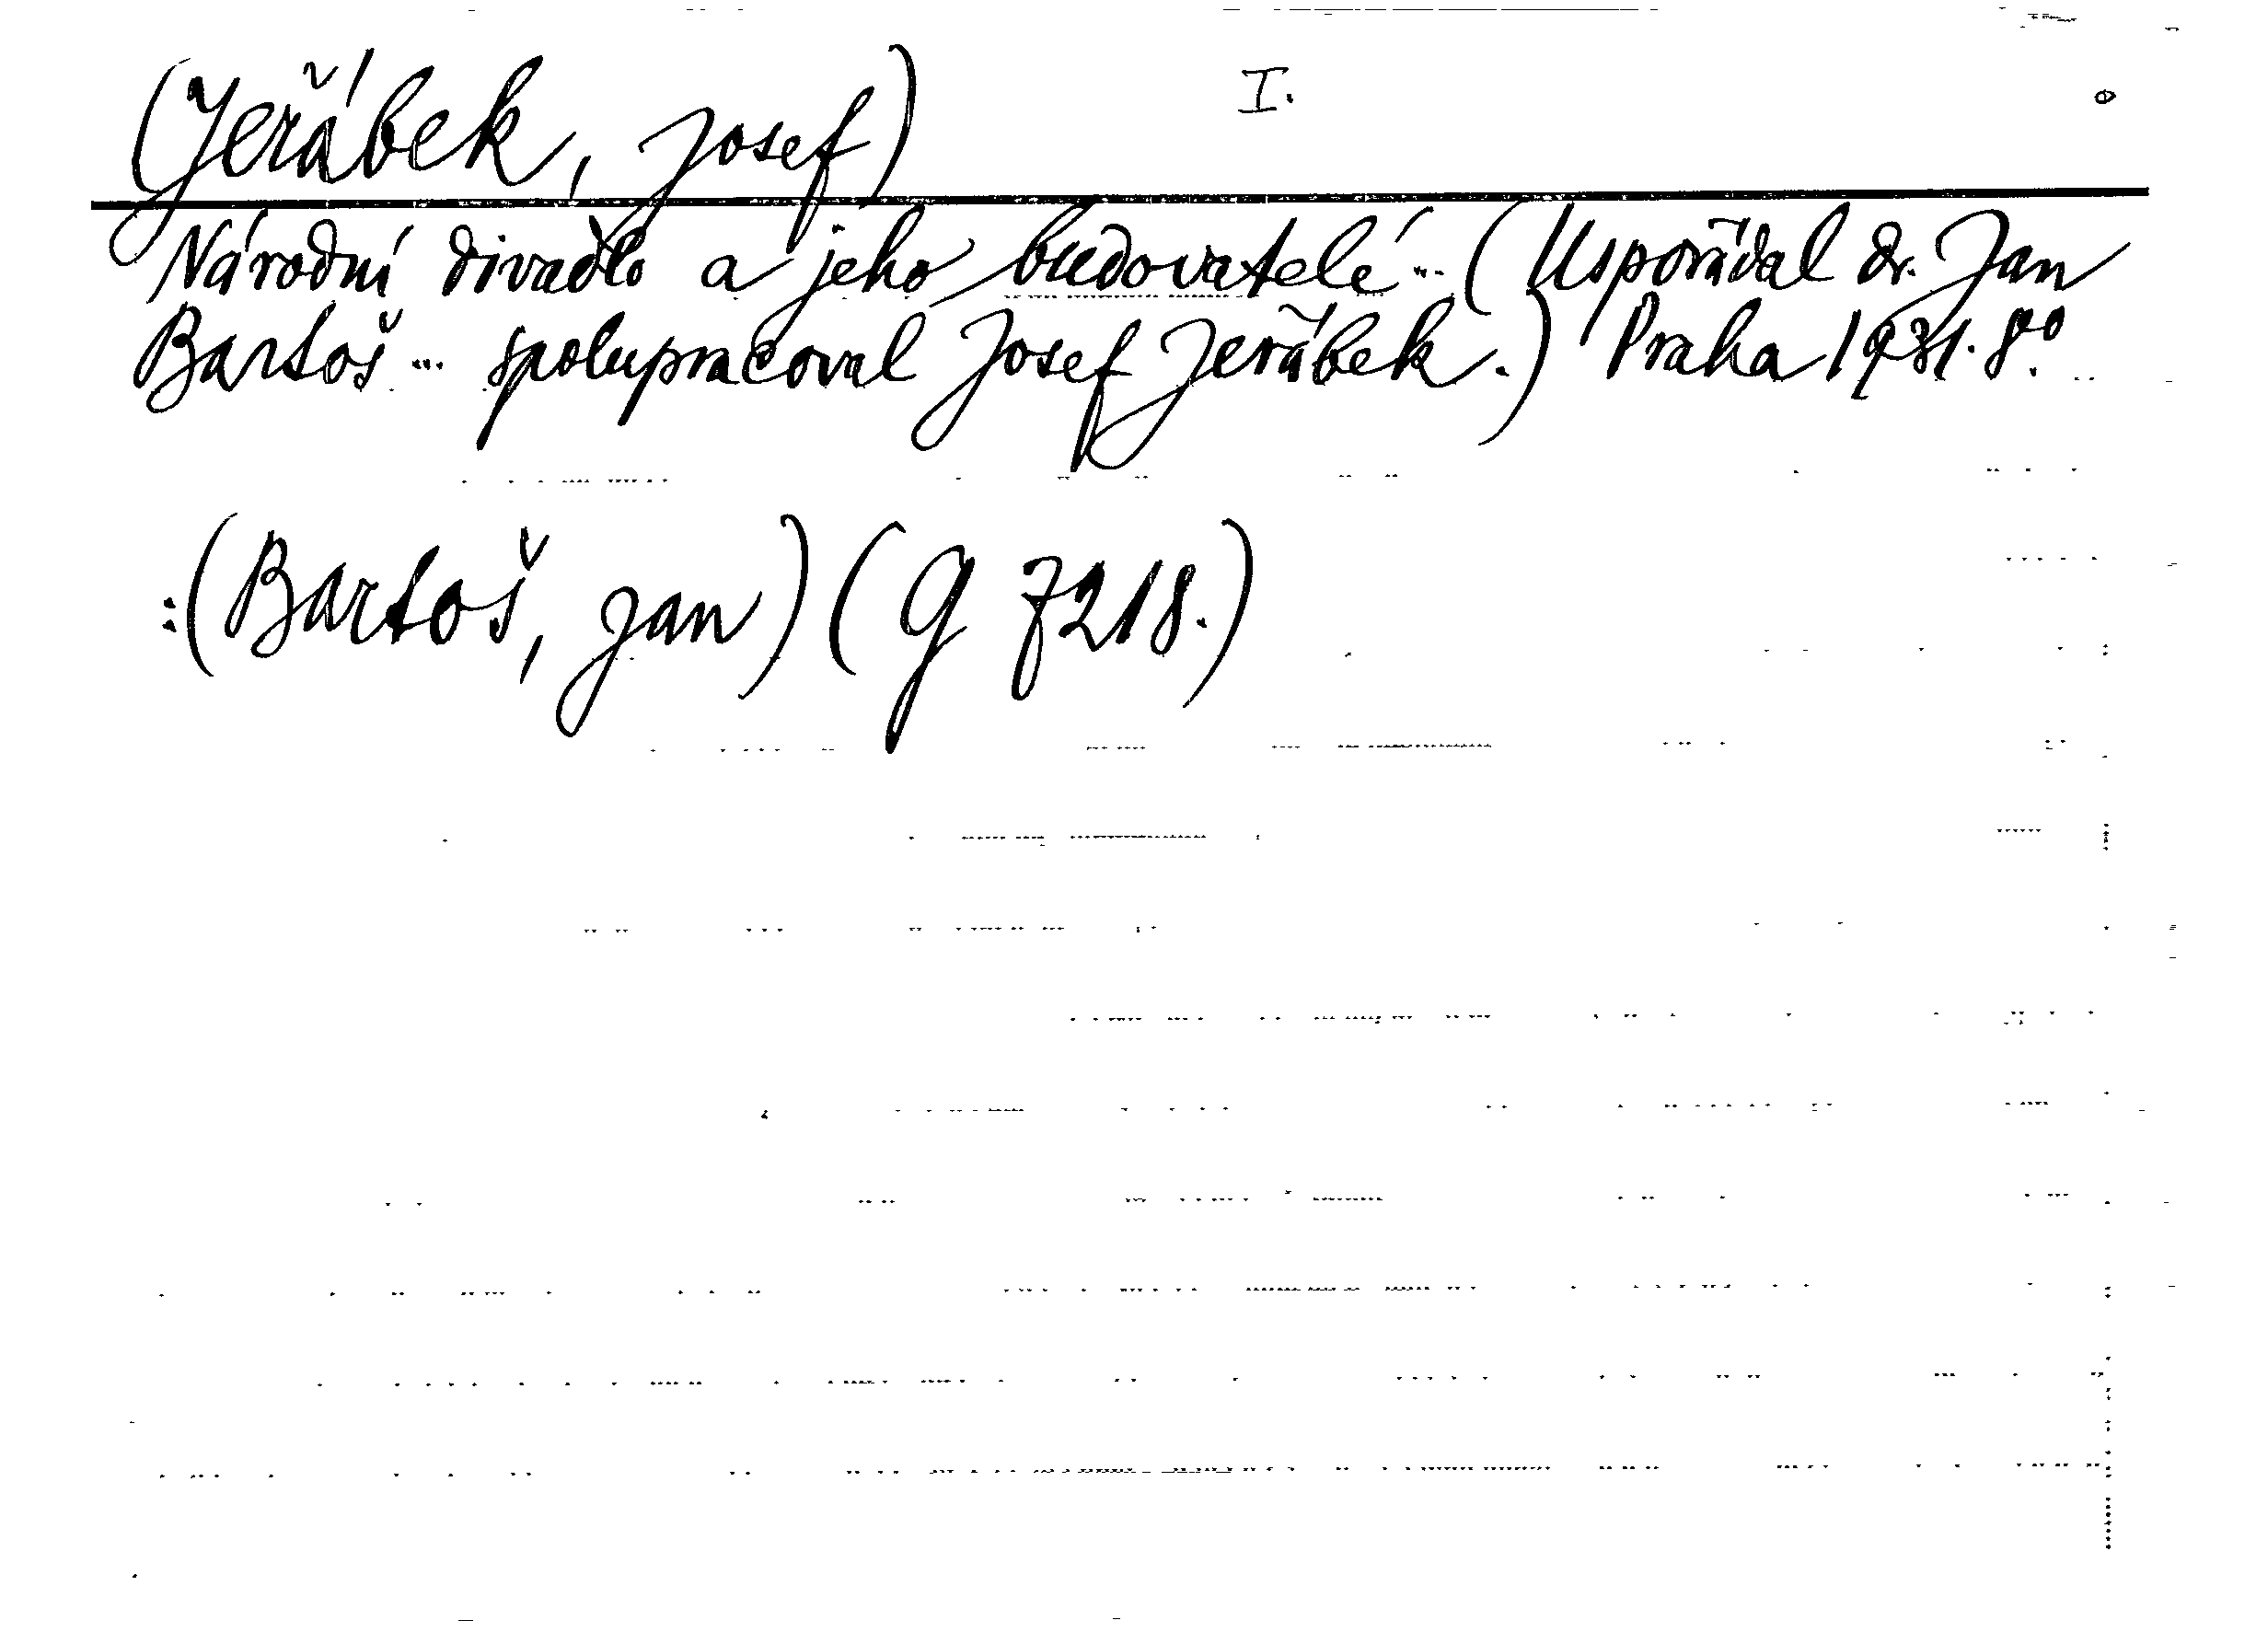 (Jeřábek, Josef) I.
Národní divadlo a jeho budovatelé... (Uspořádal dr. Jan
Bartoš... spolupracoval Josef Jeřábek.) Praha 1931. 8°.
:(Bartoš, Jan) (G 7218.)